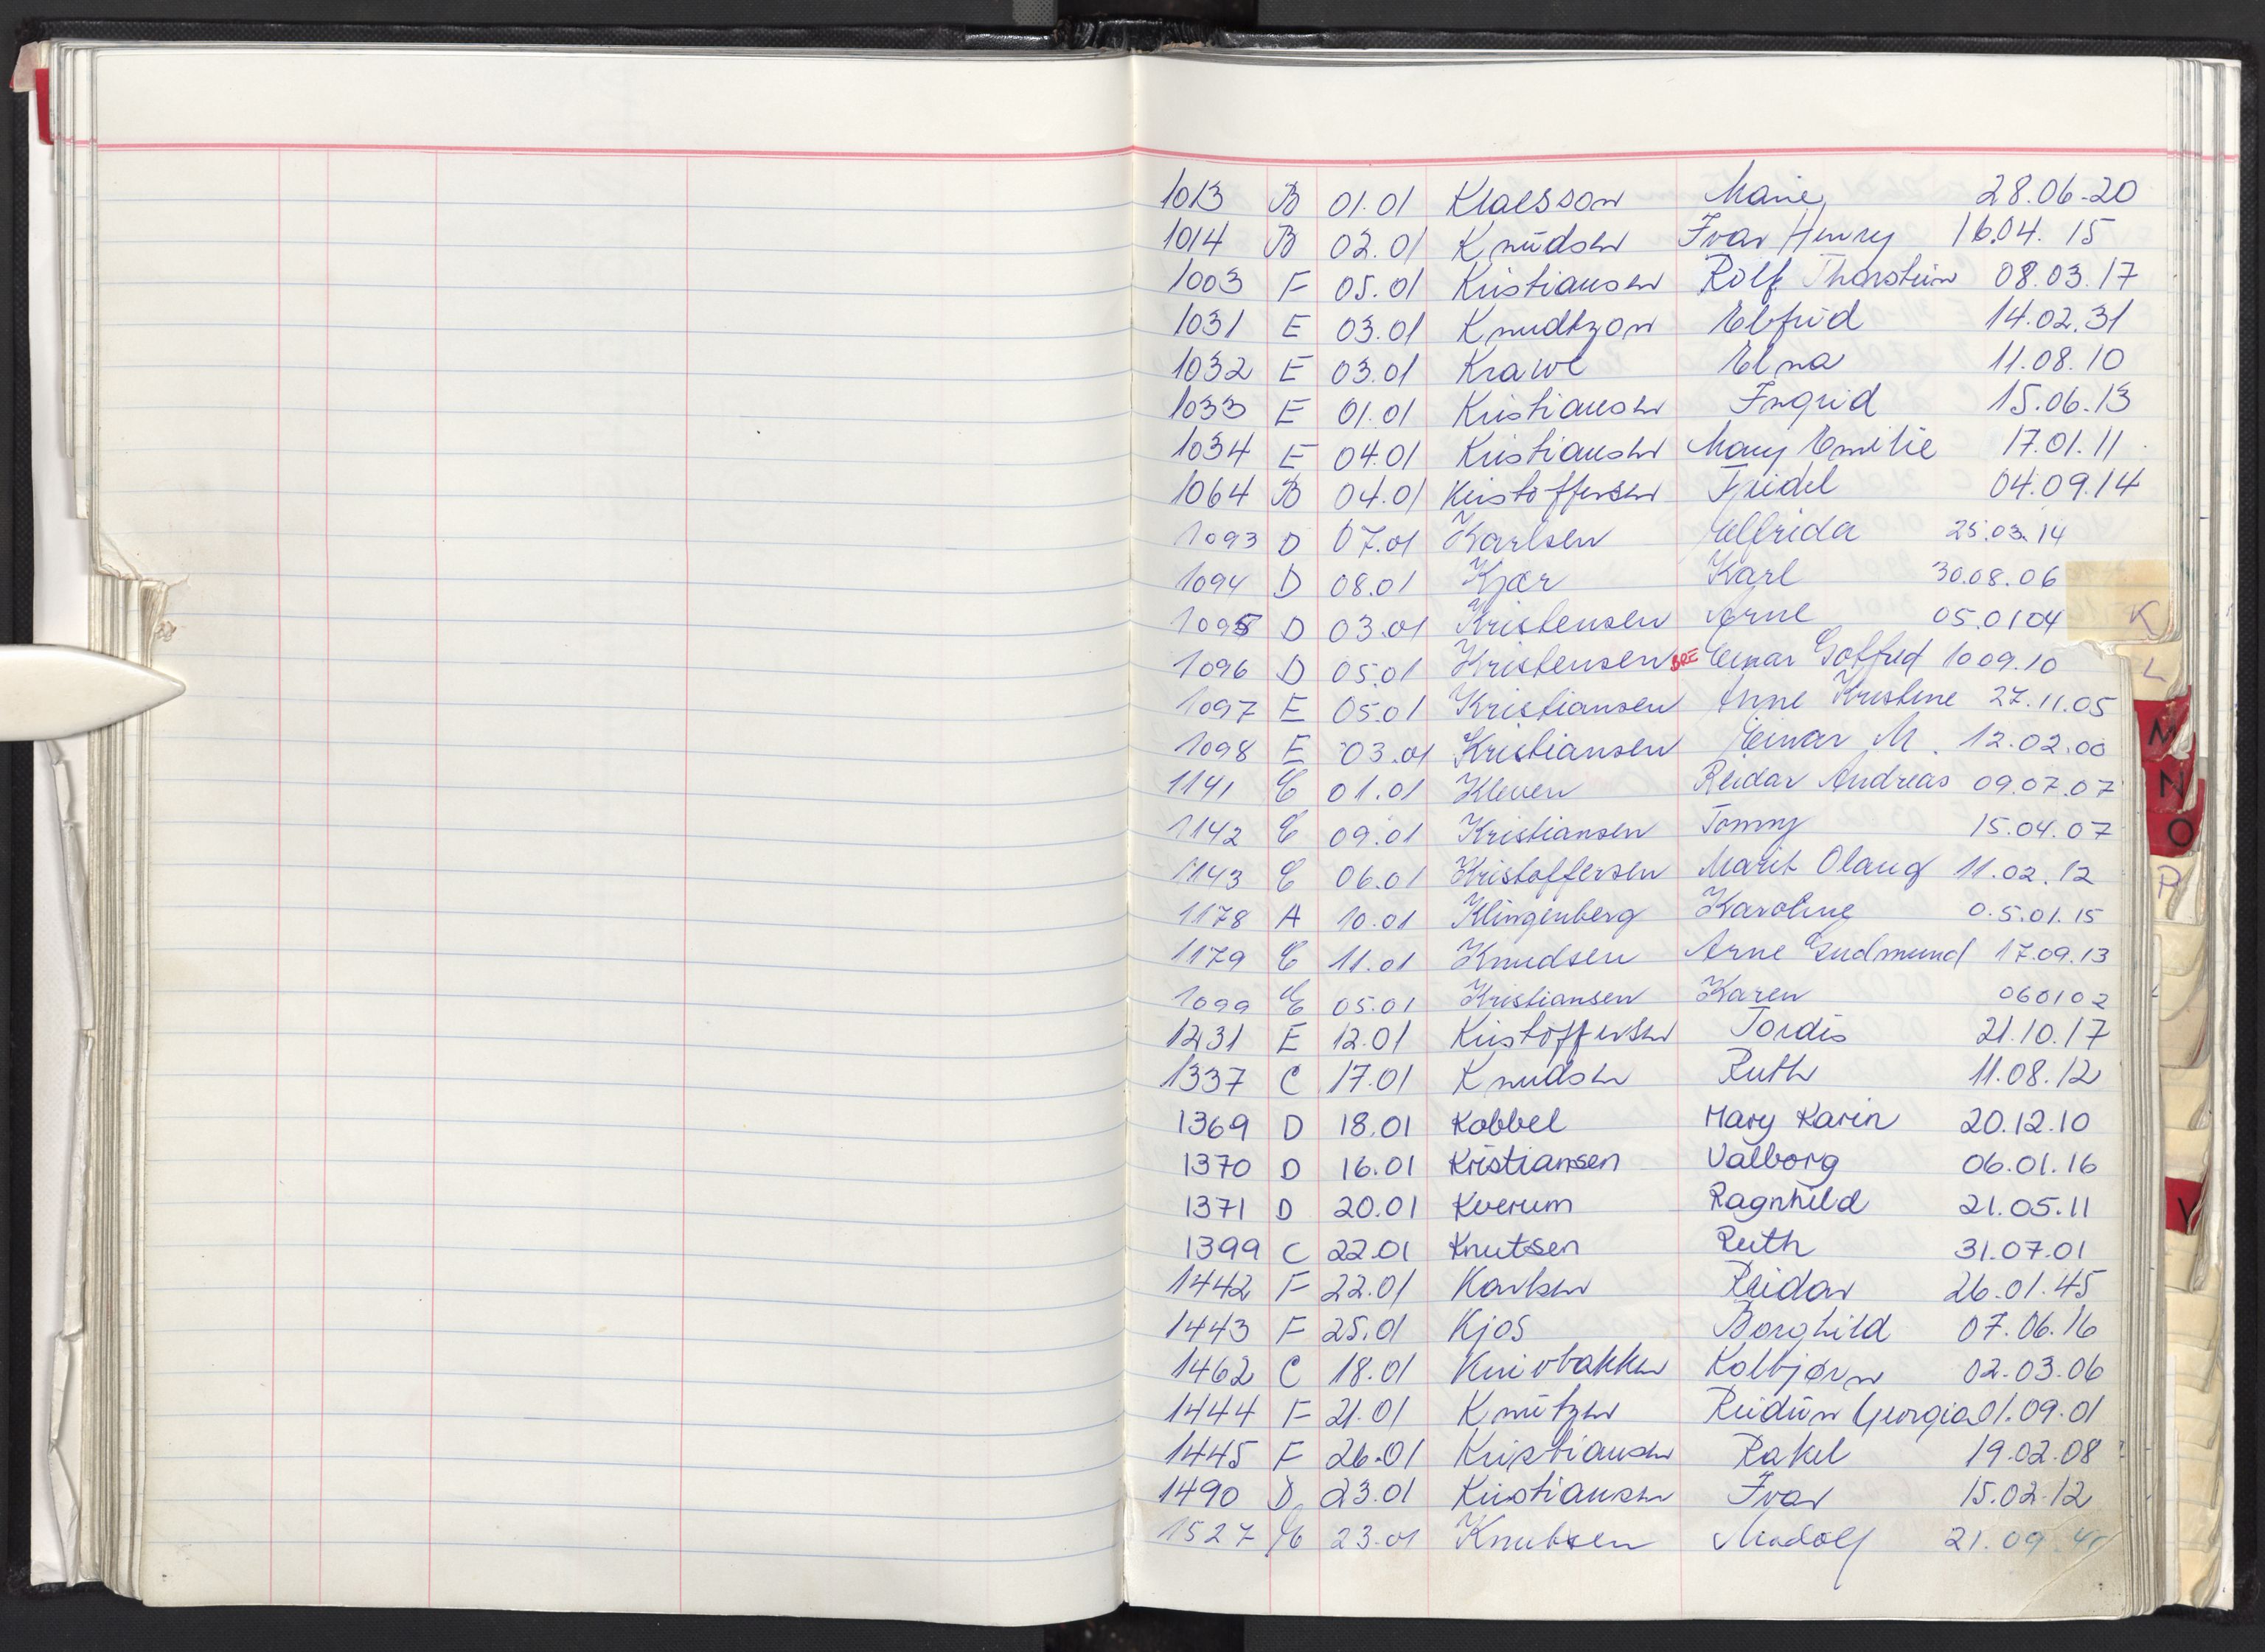 1013 B 01.01 Klaesson Marie 28.06.20
1014 B 02.01 Knudsen Ivar Henry 16.04.15
1003 F 05.01 Kristiansen Rolf Thorstein 08.03.17
1031 E 03.01 Knudtzon Elfrid 14.02.31
1032 E 03.01 Krawl Elna 11.08.10
1033 E 01.01 Kristiansen Ingrid 15.06.13
1034 E 04.01 Kristiansen Mary Emilie 17.01.11
1064 B 04.01 Kristoffersen Fridel 04.09.14
1093 D 07.01 Karlsen Elfrida 25.03.14
1094 D 08.01 Kjær Karl 30.08.06
1095 D 03.01 Kristensen Arne 05.01 04
K
1096 D 05.01 Kristensen BRE Einar Gotfred 10 09.10
L
1097 E 05.01 Kristiansen Anne Kristine 27.11.05
1098 E 03.01 Kristiansen Einar M. 12.02.00
M
1141 E 01.01 Kleven Reidar Andreas 09.07.07
N
1142 E 09.01 Kristiansen Tommy 15.04.07
O
1143 E 06.01 Kristoffersen Marit Olaug 11.02.12
P
1178 A 10.01 Klingenberg Karoline 0.5.01.15
1179 E 11.01 Knudsen Arne Gudmund 17.09.13
1099 E 05.01 Kristiansen Karen 060102
1231 E 12.01 Kristoffersen Tordis 21.10.17
1337 C 17.01 Knudsen Ruth 11.08.12
1369 D 18.01 Kobbel Mary Karin 20.12.10
1370 D 16.01 Kristiansen Valborg 06.01.16
1371 D 20.01 Kverum Ragnhild 21.05.11
V
1399 C 22.01 Knutsen Ruth 31.07.01
1442 F 22.01 Karlsen Reidar 26.01.45
1443 F 25.01 Kjos Borghild 07.06.16
1462 C 18.01 Knivbakken Kolbjørn 02.03.06
1444 F 21.01 Knutzen Reidun Georgia 01.09.01
1445 F 26.01 Kristiansen Rakel 19.02.08
1490 D 23.01 Kristiansen Ivar 15.02.12
1527 E 23.01 Knutsen 21.09